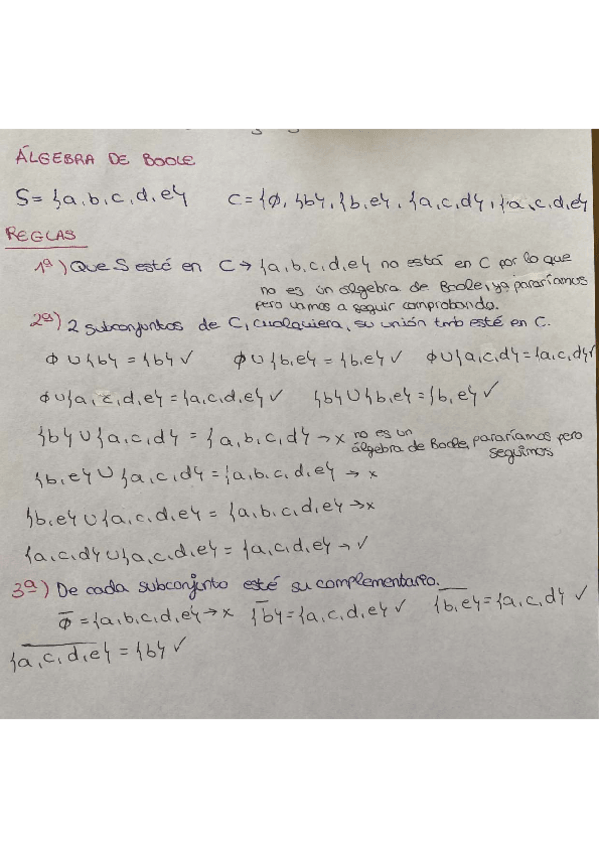 ÁLGEBRA DE BOOLE
S = {a, b, c, d, e} C = {∅, {b}, {b, e}, {a, c, d}, {a, c, d, e}
REGLAS
1ª) Que S esté en C → {a, b, c, d, e} no está en C por lo que
no es un álgebra de Boole, ya pararíamos
pero vamos a seguir comprobando.
2ª) 2 subconjuntos de C, cualquiera, su unión tmb esté en C.
∅ ∪ {b} = {b} ✓ ∅ ∪ {b, e} = {b, e} ✓ ∅ ∪ {a, c, d} = {a, c, d} ✓
∅ ∪ {a, c, d, e} = {a, c, d, e} ✓ {b} ∪ {b, e} = {b, e} ✓
{b} ∪ {a, c, d} = {a, b, c, d} → x no es un
álgebra de Boole, pararíamos pero
seguimos
{b, e} ∪ {a, c, d} = {a, b, c, d, e} → x
{b, e} ∪ {a, c, d, e} = {a, b, c, d, e} → x
{a, c, d} ∪ {a, c, d, e} = {a, c, d, e} → ✓
3ª) De cada subconjunto esté su complementario.
∅̅ = {a, b, c, d, e} → x {b}̅ = {a, c, d, e} ✓ {b, e}̅ = {a, c, d} ✓
{a, c, d, e}̅ = {b} ✓